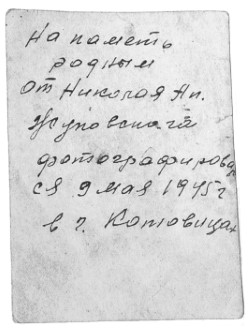 На паметь
родным
от Николая Ап.
Жуковскага
фотографировал
ся 9 мая 1945 г
в г. Котовицах